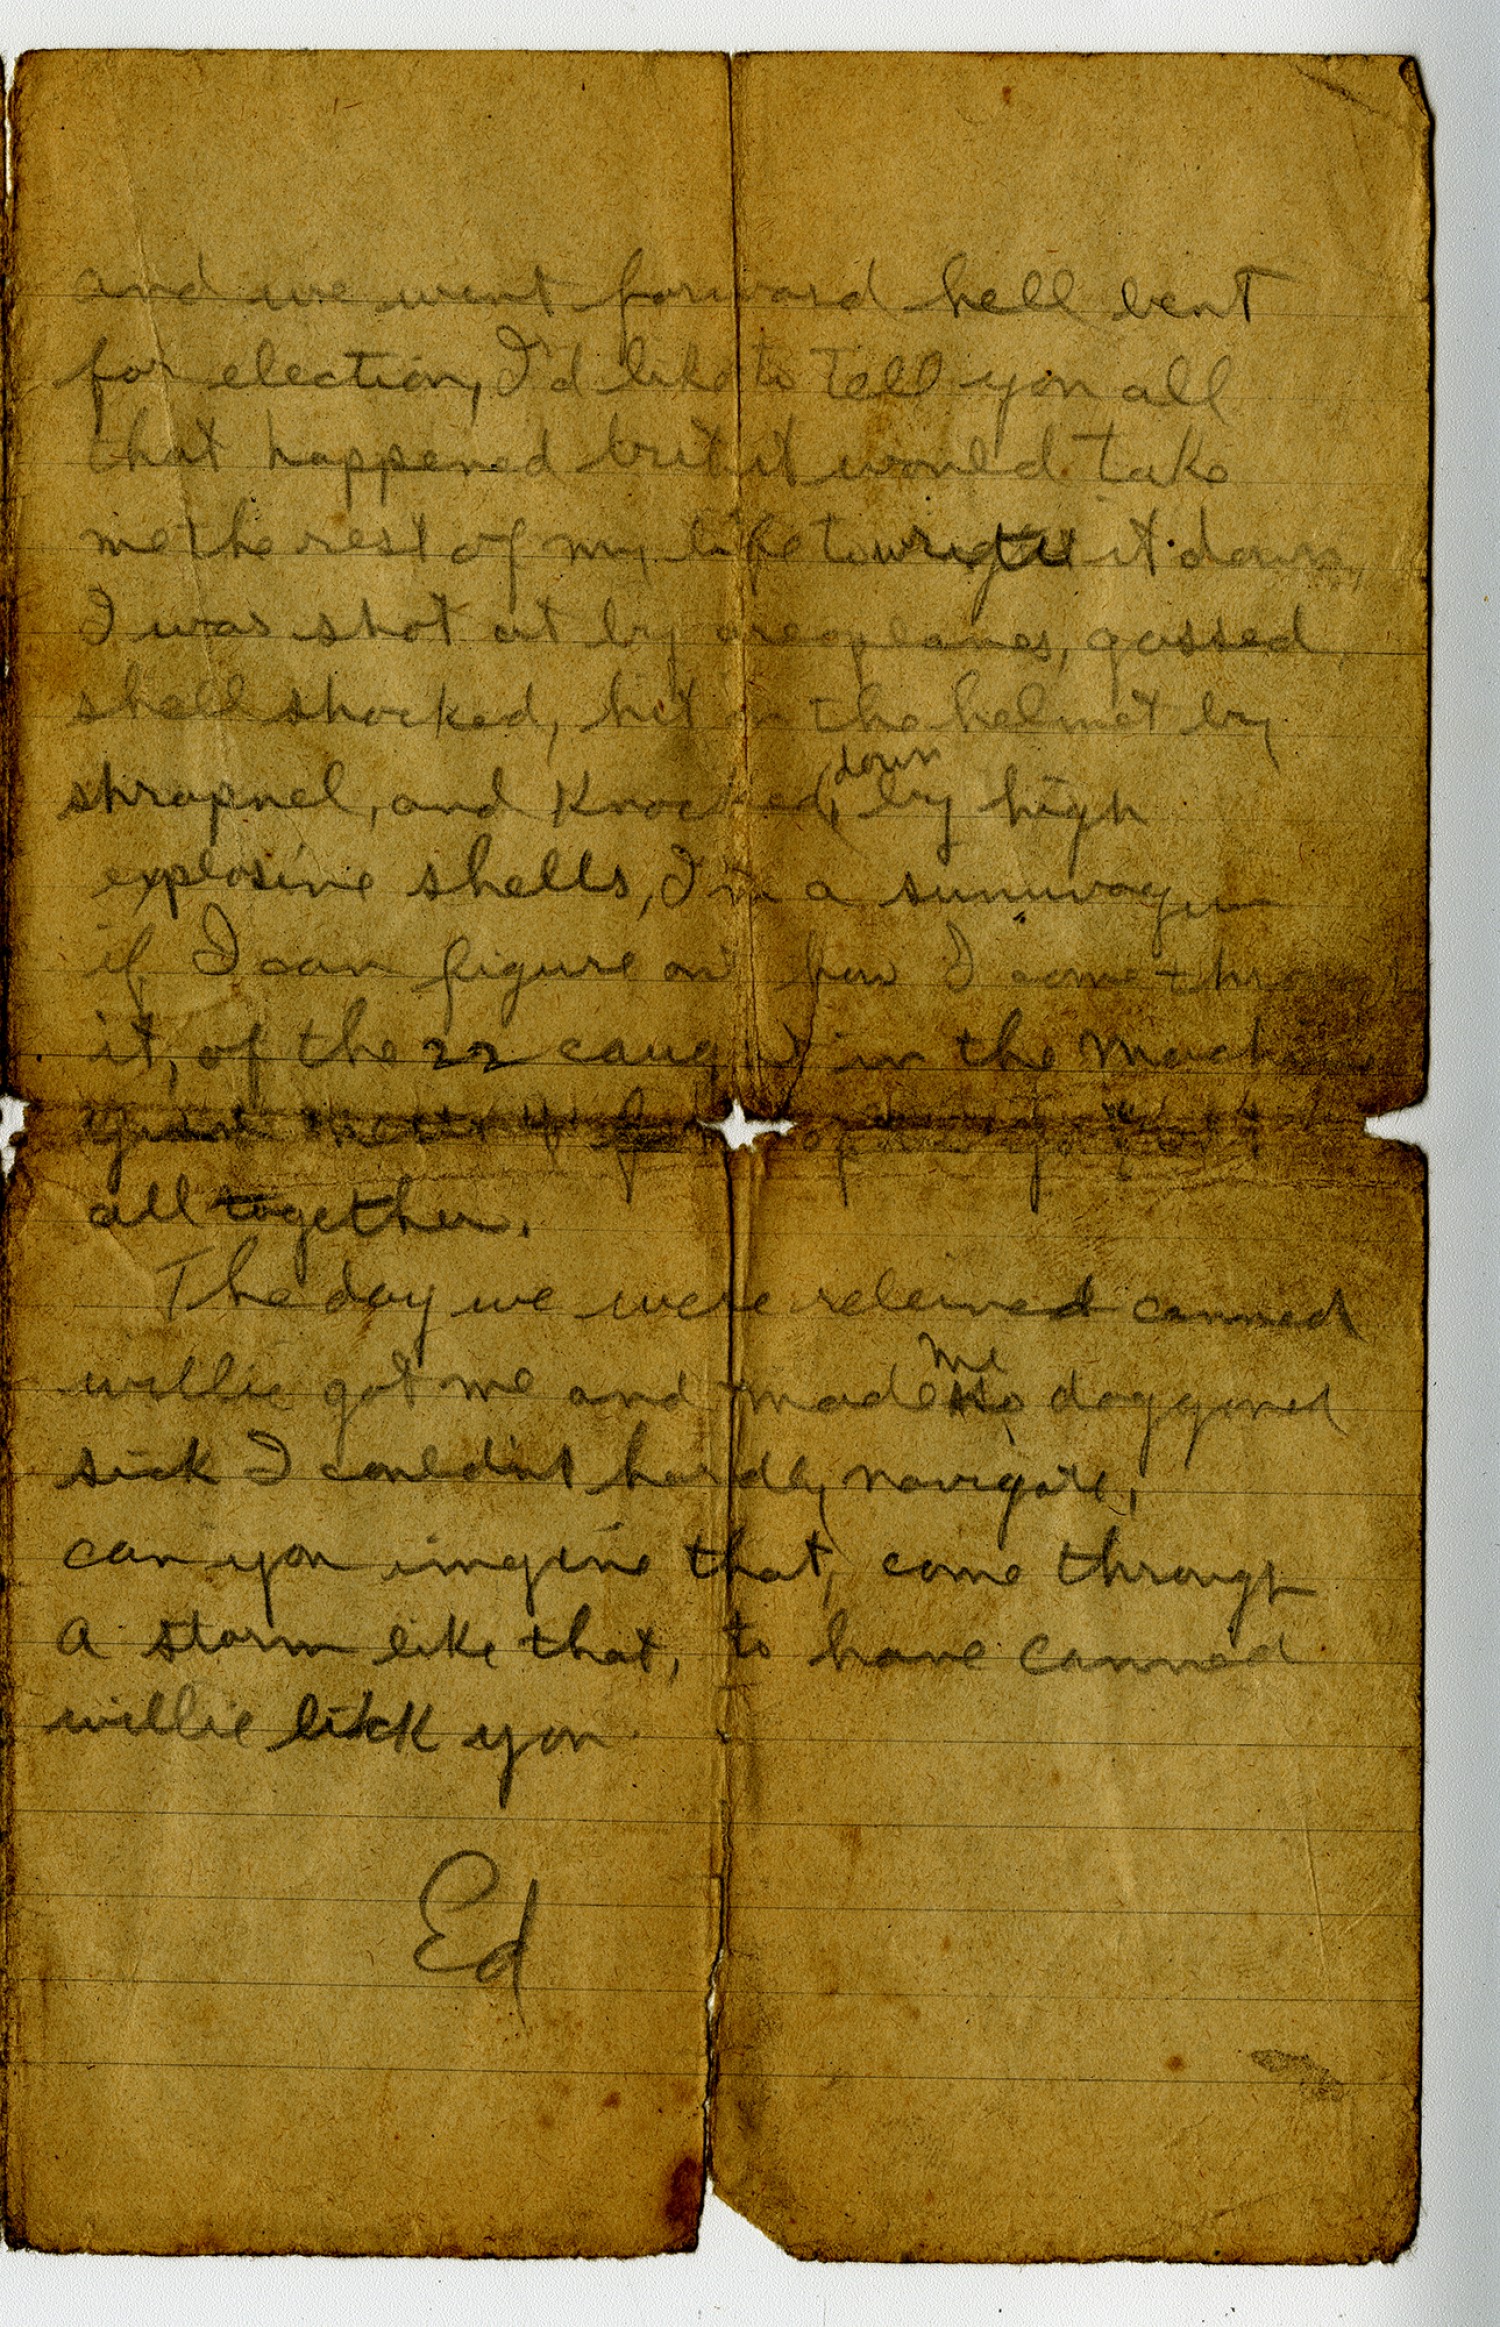 and we went forward hell bent
for election, I'd like to tell you all
that happened but it would take
me the rest of my life to write it down,
I was shot at by areoplanes, gassed
shell shocked, hit on the helmet by
shrapnel, and knocked down by high
explosive shells, I'm a sunuvagun
if I can figure out how I come through
it, of the 22 caught in the machine
all together.
The day we were releived canned
willie got me and made me so doggoned
sick I couldnt hardly navigate,
can you imgine that, come through
a storm like that, to have canned
willie lick you.
Ed